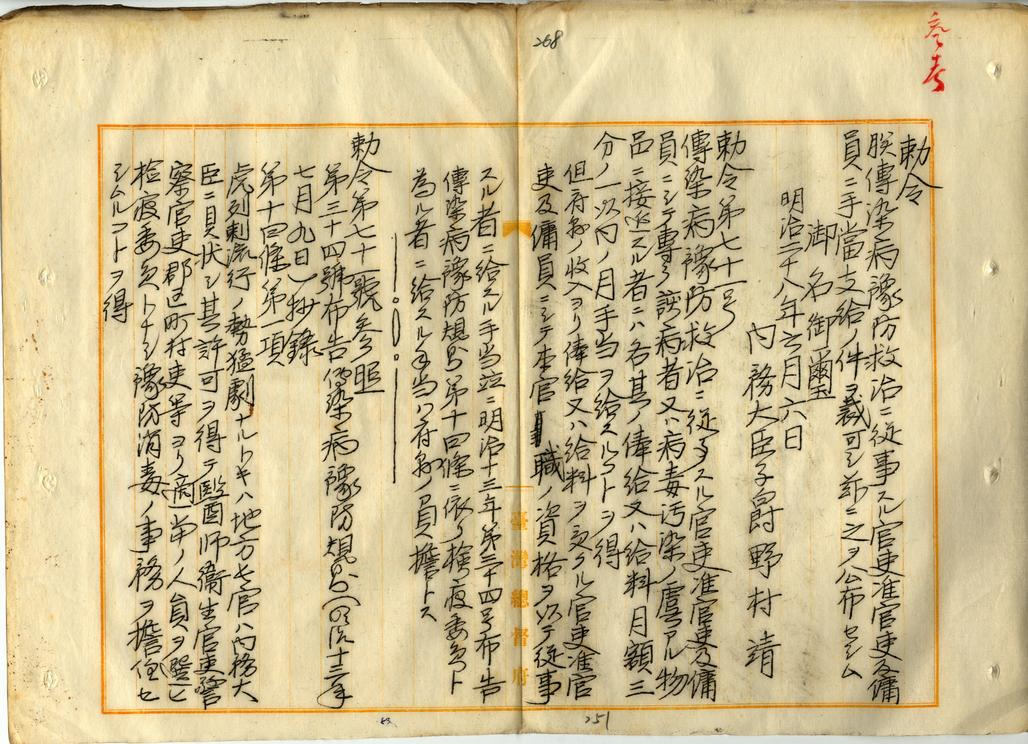 參考
268
勅令
朕傳染病豫防救治ニ従事スル官吏准官吏及傭
員ニ手當支給ノ件ヲ裁可シ茲ニ之ヲ公布セシム
御名御璽
明治二十八年六月六日
内務大臣子爵野村靖
勅令第七十一号
傳染病豫防救治ニ従事スル官吏准官吏及傭
員ニシテ專ラ該病者又ハ病毒汚染ノ虞アル物
品ニ接近スル者ニハ各其ノ俸給又ハ給料月額三
分ノ一以内ノ月手当ヲ給スルコトヲ得
但府縣ノ收入ヨリ俸給又ハ給料ヲ受クル官吏准官
吏及傭員ニシテ本官職ノ資格ヲ以テ従事
スル者ニ給スル手当竝ニ明治十三年第三十四号布告
傳染病豫防規則第十四條ニ依リ検疫委員ト
為ル者ニ給スル手当ハ府縣ノ負擔トス
勅令第七十一號参照
第三十四號布告傳染病豫防規則(明治十三年
七月九日)抄錄
第十四條第一項
虎列剌流行ノ勢猛劇ナルトキハ地方長官ハ内務大
臣ニ具状シ其許可ヲ得テ醫師衞生官吏警
察官吏郡区町村吏等ヨリ適当ノ人員ヲ選ヒ
検疫委員トナシ豫防消毒ノ事務ヲ擔任セ
シムルコトヲ得
臺灣總督府
251